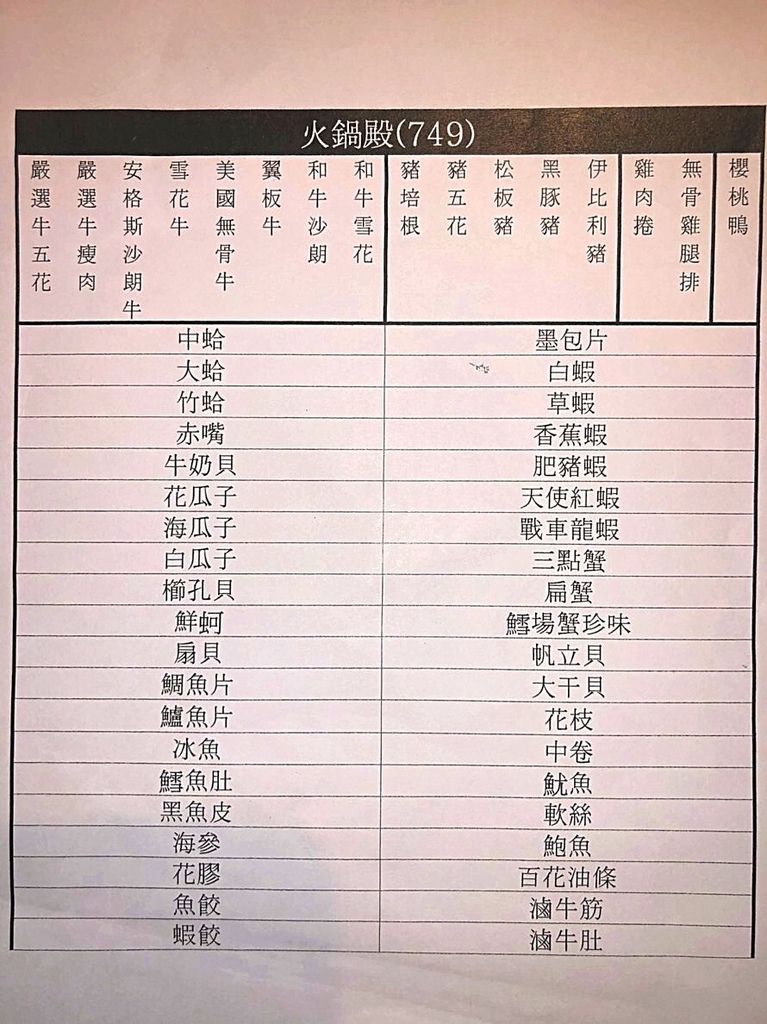 火鍋殿(749)
嚴選牛五花
嚴選牛瘦肉
安格斯沙朗牛
雪花牛
美國無骨牛
翼板牛
和牛沙朗
和牛雪花
豬培根
豬五花
松板豬
黑豚豬
伊比利豬
雞肉捲
無骨雞腿排
櫻桃鴨
中蛤
大蛤
竹蛤
赤嘴
牛奶貝
花瓜子
海瓜子
白瓜子
櫛孔貝
鮮蚵
扇貝
鯛魚片
鱸魚片
冰魚
鱈魚肚
黑魚皮
海參
花膠
魚餃
蝦餃
墨包片
白蝦
草蝦
香蕉蝦
肥豬蝦
天使紅蝦
戰車龍蝦
三點蟹
扁蟹
鱈場蟹珍味
帆立貝
大干貝
花枝
中卷
魷魚
軟絲
鮑魚
百花油條
滷牛筋
滷牛肚